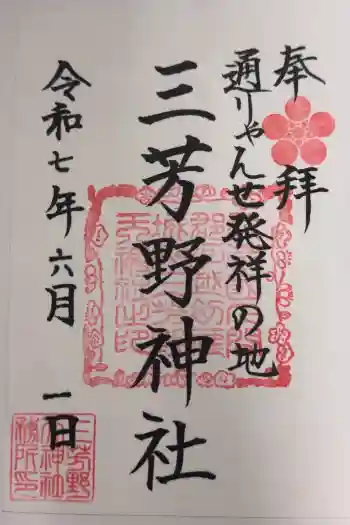 奉拝
通りゃんせ発祥の地
三芳野神社
令和七年六月一日
三芳野神社務所印